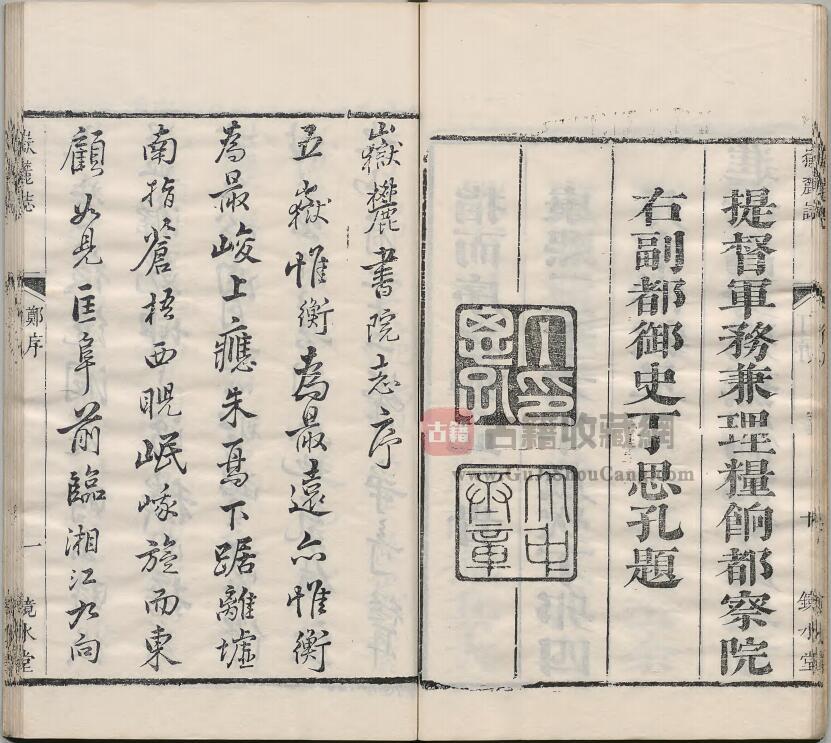 嶽麓志
鏡水堂
提督軍務兼理糧餉都察院
右副都御史丁思孔題
丁思孔印
大中丞章
嶽麓書院志序
五嶽惟衡為最遠亦惟衡
為最峻上應朱鳥下踞離墟
南指蒼梧西睨岷峨旋而東
顧如見匡阜前臨湘江九向
嶽麓志
鄭序
一
鏡水堂
古籍
古籍收藏網
www.GujiShouCang.com